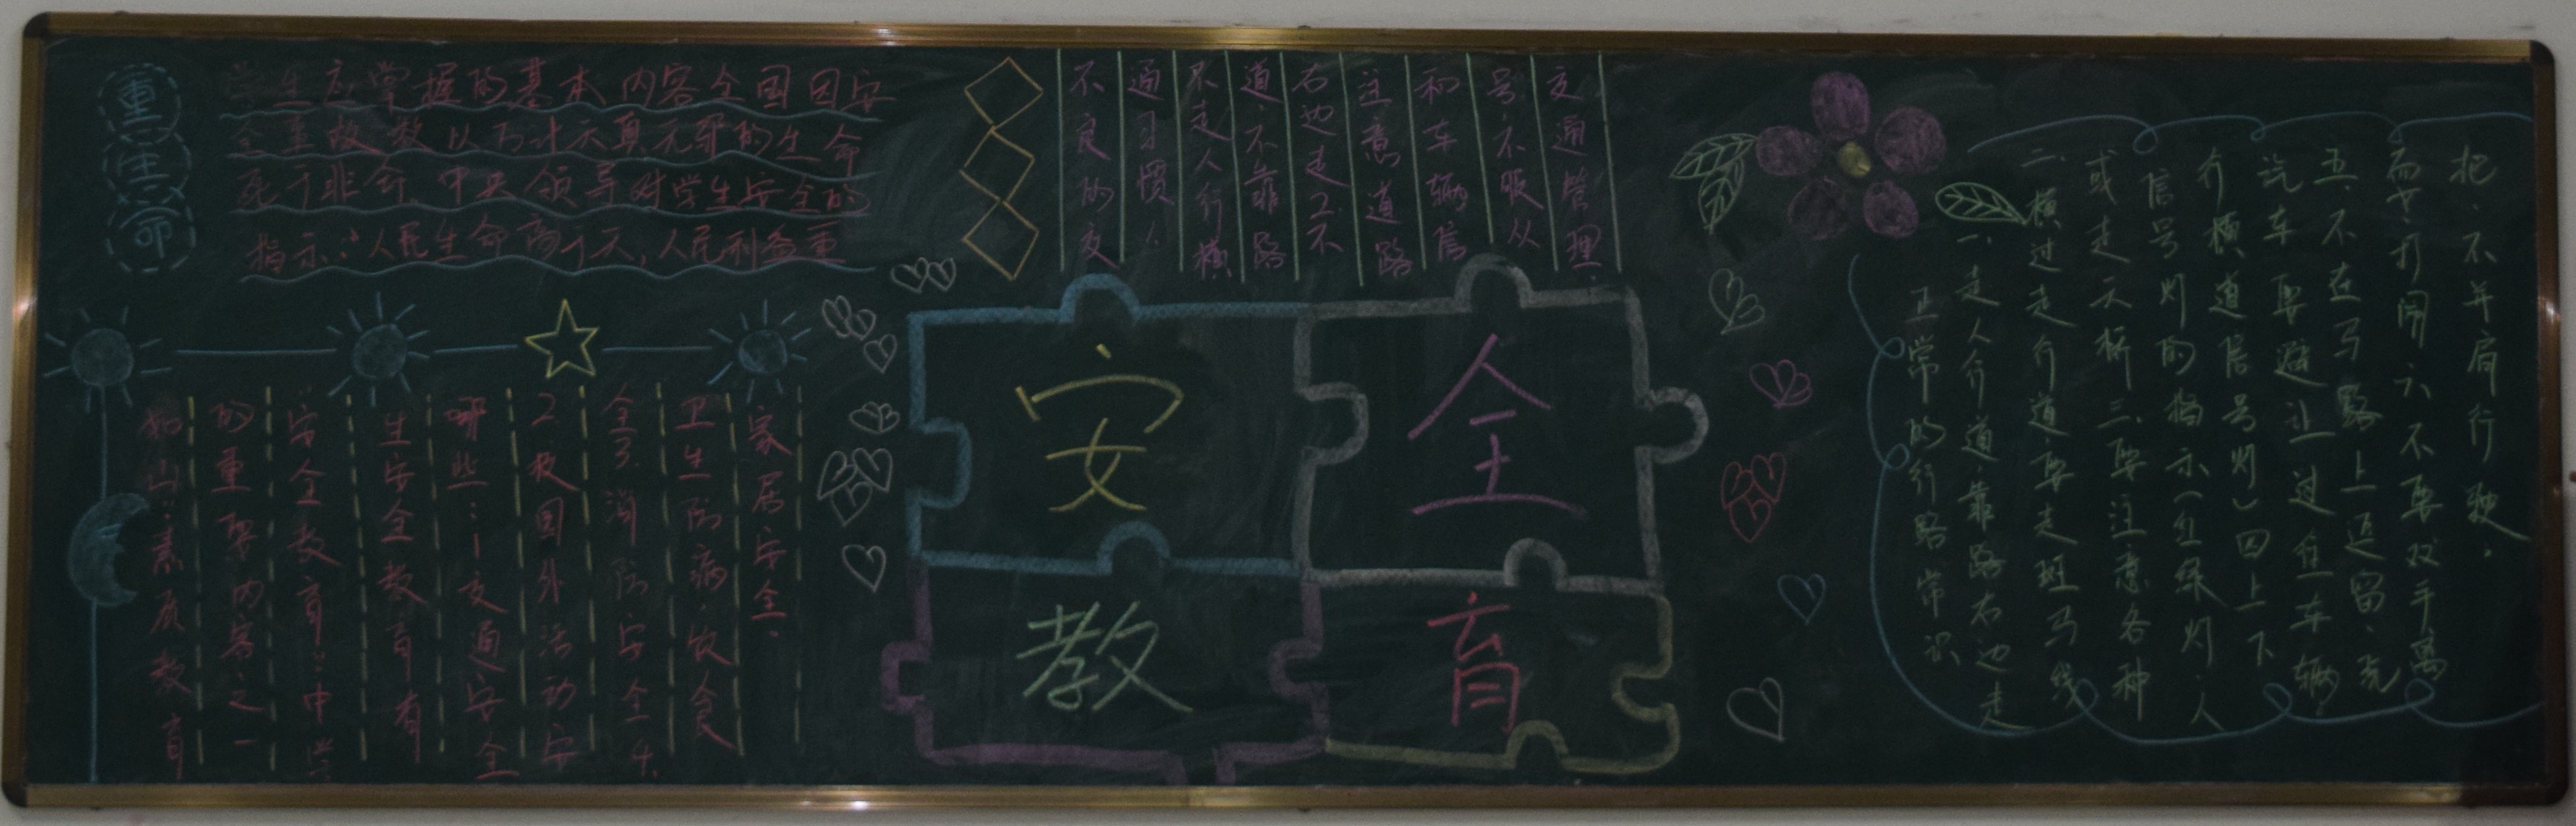 重生命
学生应掌握的基本内容全国因安
全事故数以万计天真无邪的生命
死于非命，中央领导对学生安全的
指示：人民生命高于天，人民利益重
如山：素质教育
的重要内容之一
安全教育：中学
生安全教育有
哪些：1交通安全
2.校园外活动安
全3.消防安全4.
卫生防病饮食
家居安全.
不良的交
通习惯1.
不走人行横
道.不靠路
右边走2.不
注意道路
和车辆信
号.不服从
交通管理.
安全
教育
正常的行路常识
一.走人行道.靠路右边走
二.横过走行道.要走斑马线
或走天桥三.要注意各种
信号灯的指示(红绿灯.人
行横道信号灯)四上下
汽车要避让过往车辆
五.不在马路上逗留.
而女.打闹六不要双手离
把.不并肩行驶.